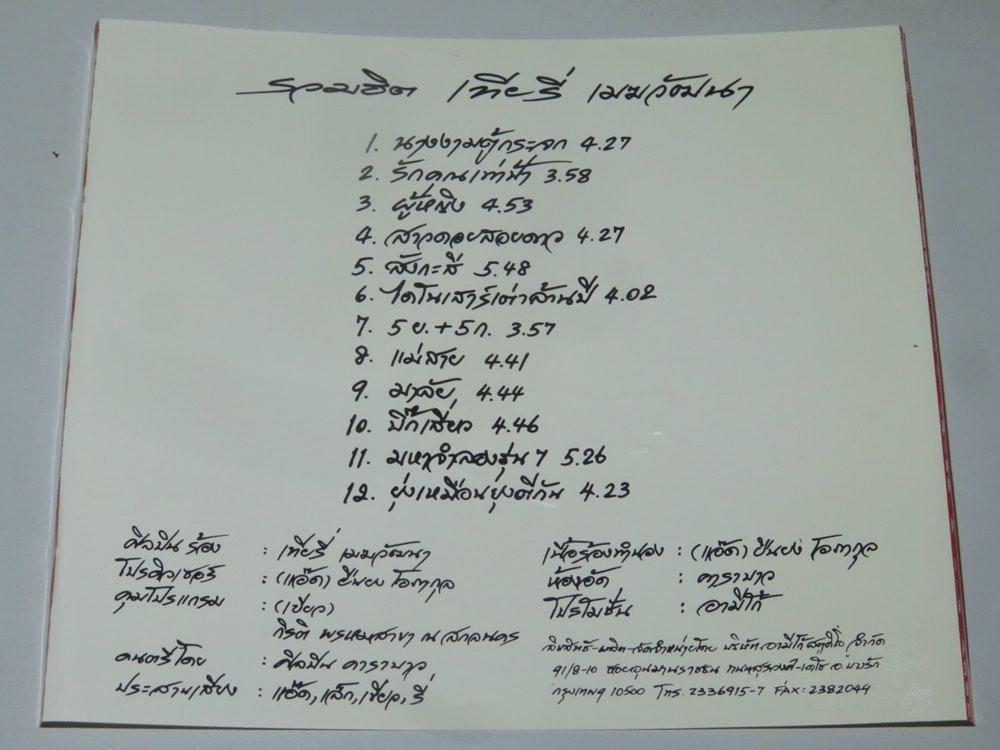 รวมฮิต เทียรี่ เมฆวัฒนา
1. นางงามตู้กระจก 4.27
2. รักคุณเท่าฟ้า 3.58
3. ผู้หญิง 4.53
4. สาวดอยสอยดาว 4.27
5. สังกะสี 5.48
6. ไดโนเสาร์เต่าล้านปี 4.02
7. 5 ย.+5 ก. 3.57
8. แม่สาย 4.41
9. มาลัย 4.44
10. บิ๊กเสี่ยว 4.46
11. มหาจำลองรุ่น 7 5.26
12. ยุ่งเหมือนยุงตีกัน 4.23
ศิลปิน ร้อง : เทียรี่ เมฆวัฒนา
โปรดิวเซอร์ : (แอ๊ด) ยืนยง โอภากุล
คุมโปรแกรม : (เขียว)
กิรติ พรหมสาขา ณ สกลนคร
ดนตรีโดย : ศิลปิน คาราบาว
ประสานเสียง : แอ๊ด, เล็ก, เขียว, รี่
เนื้อร้องทำนอง : (แอ๊ด) ยืนยง โอภากุล
ห้องอัด : คาราบาว
โปรโมชั่น : อามีโก้
ลิขสิทธิ์-ผลิต-จัดจำหน่ายโดย บริษัท อามีโก้ สตูดิโอ จำกัด
91/8-10 ซอยอนุมานราชธน ถนนสุรวงศ์-เดโช อ.บางรัก
กรุงเทพฯ 10500 โทร. 2336915-7 FAX: 2382044